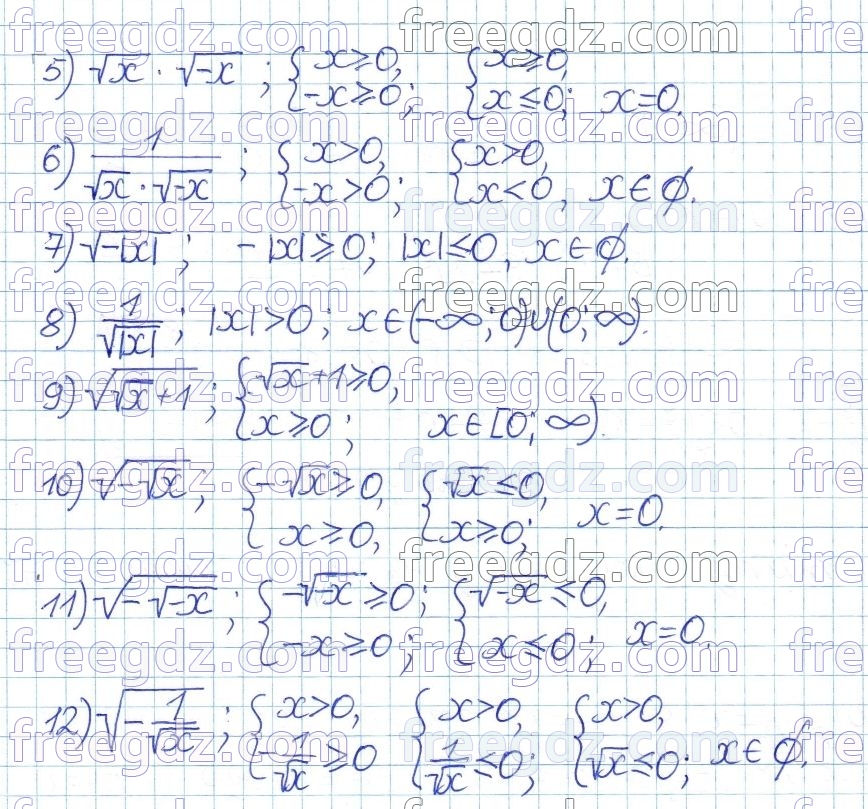 5) √x · √-x ; { x ≥ 0, -x ≥ 0; { x ≥ 0, x ≤ 0; x = 0.
6) 1/(√x · √-x) ; { x > 0, -x > 0; { x > 0, x < 0, x ∈ ∅.
7) √-|x| ; -|x| ≥ 0; |x| ≤ 0, x ∈ ∅.
8) 1/√|x| ; |x| > 0; x ∈ (-∞; 0) ∪ (0; ∞).
9) √(√x + 1) ; { √x + 1 ≥ 0, x ≥ 0; x ∈ [0; ∞).
10) √(-√x) ; { -√x ≥ 0, x ≥ 0, { √x ≤ 0, x ≥ 0; x = 0.
11) √(-√-x) ; { -√-x ≥ 0; -x ≥ 0; { √-x ≤ 0, x ≤ 0; x = 0.
12) √(-1/√x) ; { x > 0, -1/√x ≥ 0 { x > 0, 1/√x ≤ 0; { x > 0, √x ≤ 0; x ∈ ∅.
freegdz.com